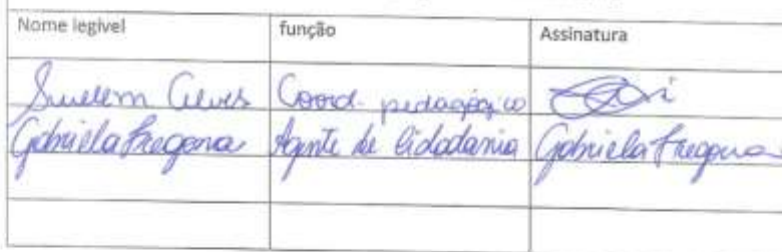 Nome legível função Assinatura
Suelem Alves Coord. pedagógico
Gabriela Fregona Agente de Cidadania Gabriela Fregona